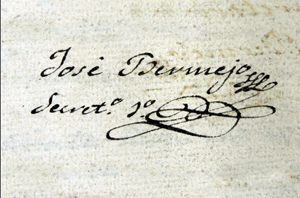 José Bermejo
Secret.º 1.º